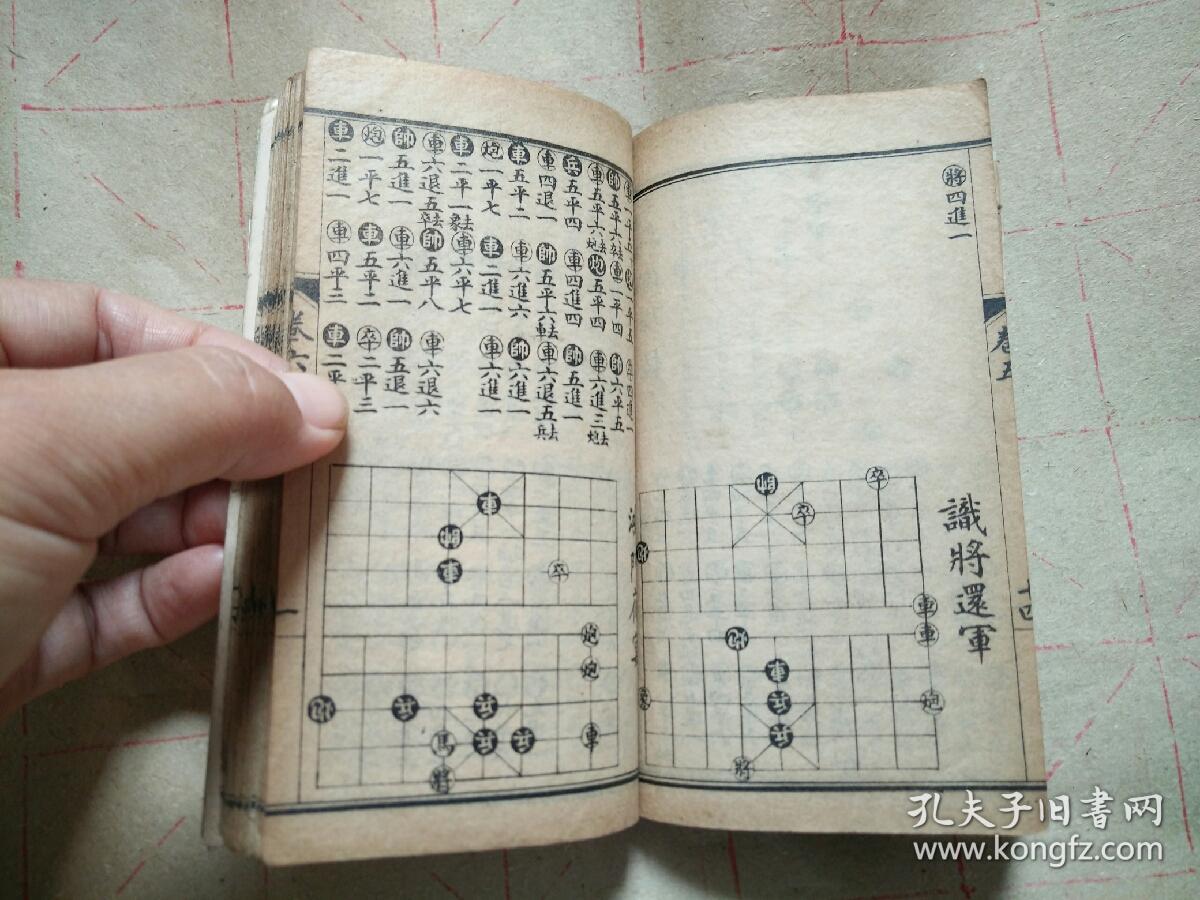 卷五
十四
將四進一
識將還軍
帥 卒
卒
車
車
車
兵 炮
兵
將
平五 一平五 卒四進一
帥五平六去卒 車一平四 帥六平五
車五平六去炮 炮五平四 車六進三去炮
兵五平四 車四進四 帥五進一
車四退一 帥五平六去車 車六退五去兵
車五平二 車六進六 帥六進一
炮一平七 車二進一 車六進一
車二平一去象 車六平七
車六退五去卒 帥五平八 車六退六
帥五進一 車六進一 帥五退一
炮一平七 車五平二 卒二平三
車二進一 車四平二 車二平
卷六
一
車
帥
車 卒
炮
炮
炮 兵 兵
馬 兵 兵 車
將
孔夫子旧書网
www.kongfz.com